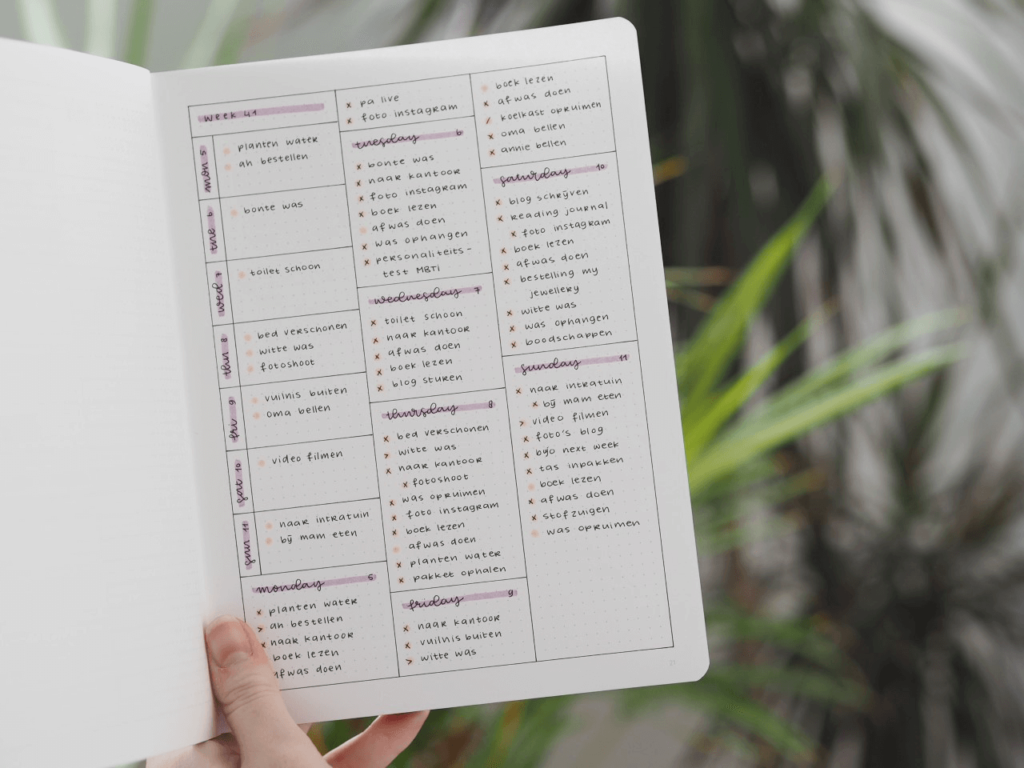 week 41
mon 5
planten water
ah bestellen
tue 6
bonte was
wed 7
toilet schoon
thu 8
bed verschonen
witte was
fotoshoot
fri 9
vuilnis buiten
oma bellen
sat 10
video filmen
sun 11
naar intratuin
bij mam eten
monday 5
x planten water
> ah bestellen
x naar kantoor
boek lezen
afwas doen
x pa live
x foto instagram
tuesday 6
x bonte was
x naar kantoor
x foto instagram
x boek lezen
afwas doen
x was ophangen
x personaliteits-
test MBTI
wednesday 7
x toilet schoon
x naar kantoor
x afwas doen
x boek lezen
x blog sturen
thursday 8
x bed verschonen
> witte was
x naar kantoor
x fotoshoot
x was opruimen
x foto instagram
x boek lezen
afwas doen
x planten water
x pakket ophalen
friday 9
x naar kantoor
x vuilnis buiten
> witte was
boek lezen
x afwas doen
/ koelkast opruimen
x oma bellen
x annie bellen
saturday 10
x blog schrijven
x reading journal
x foto instagram
x boek lezen
x afwas doen
x bestelling my
jewellery
x witte was
x was ophangen
x boodschappen
sunday 11
x naar intratuin
x bij mam eten
> video filmen
x foto's blog
x bujo next week
x tas inpakken
boek lezen
x afwas doen
x stofzuigen
was opruimen